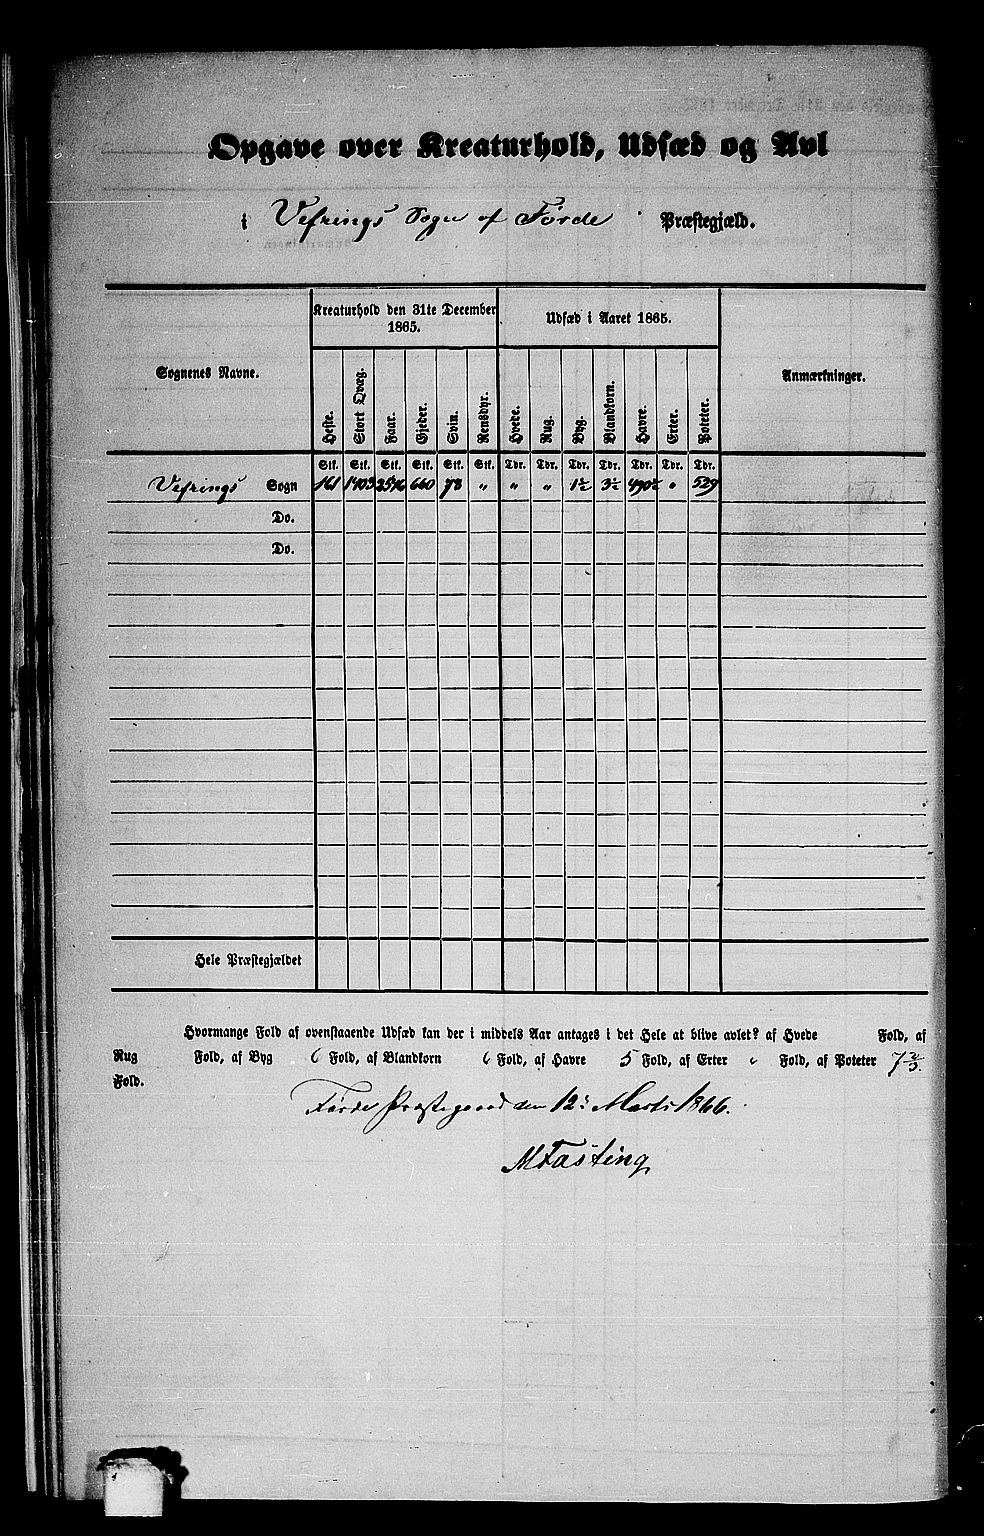 Opgave over Kreaturhold, Udsæd og Avl
i Vefrings Sogn af Førde Præstegjæld.
Sognenes Navne. Kreaturhold den 31te December 1865. Udsæd i Aaret 1865. Anmærkninger.
Heste. Stort Qvæg. Faar. Gjeder. Svin. Rensdyr. Hvede. Rug. Byg. Blandkorn. Havre. Erter. Poteter.
Stk. Stk. Stk. Stk. Stk. Stk. Tdr. Tdr. Tdr. Tdr. Tdr. Tdr. Tdr.
Vefrings Sogn 161 1403 2576 660 78 " " " 1½ 3½ 490½ " 529
Do.
Do.
Hele Præstegjældet
Hvormange Fold af ovenstaaende Udsæd kan der i middels Aar antages i det Hele at blive avlet? af Hvede Fold, af
Rug Fold, af Byg 6 Fold, af Blandkorn 6 Fold, af Havre 5 Fold, af Erter " Fold, af Poteter 7⅔
Fold.
Førde Præstegaard den 12: Marts 1866.
MFasting